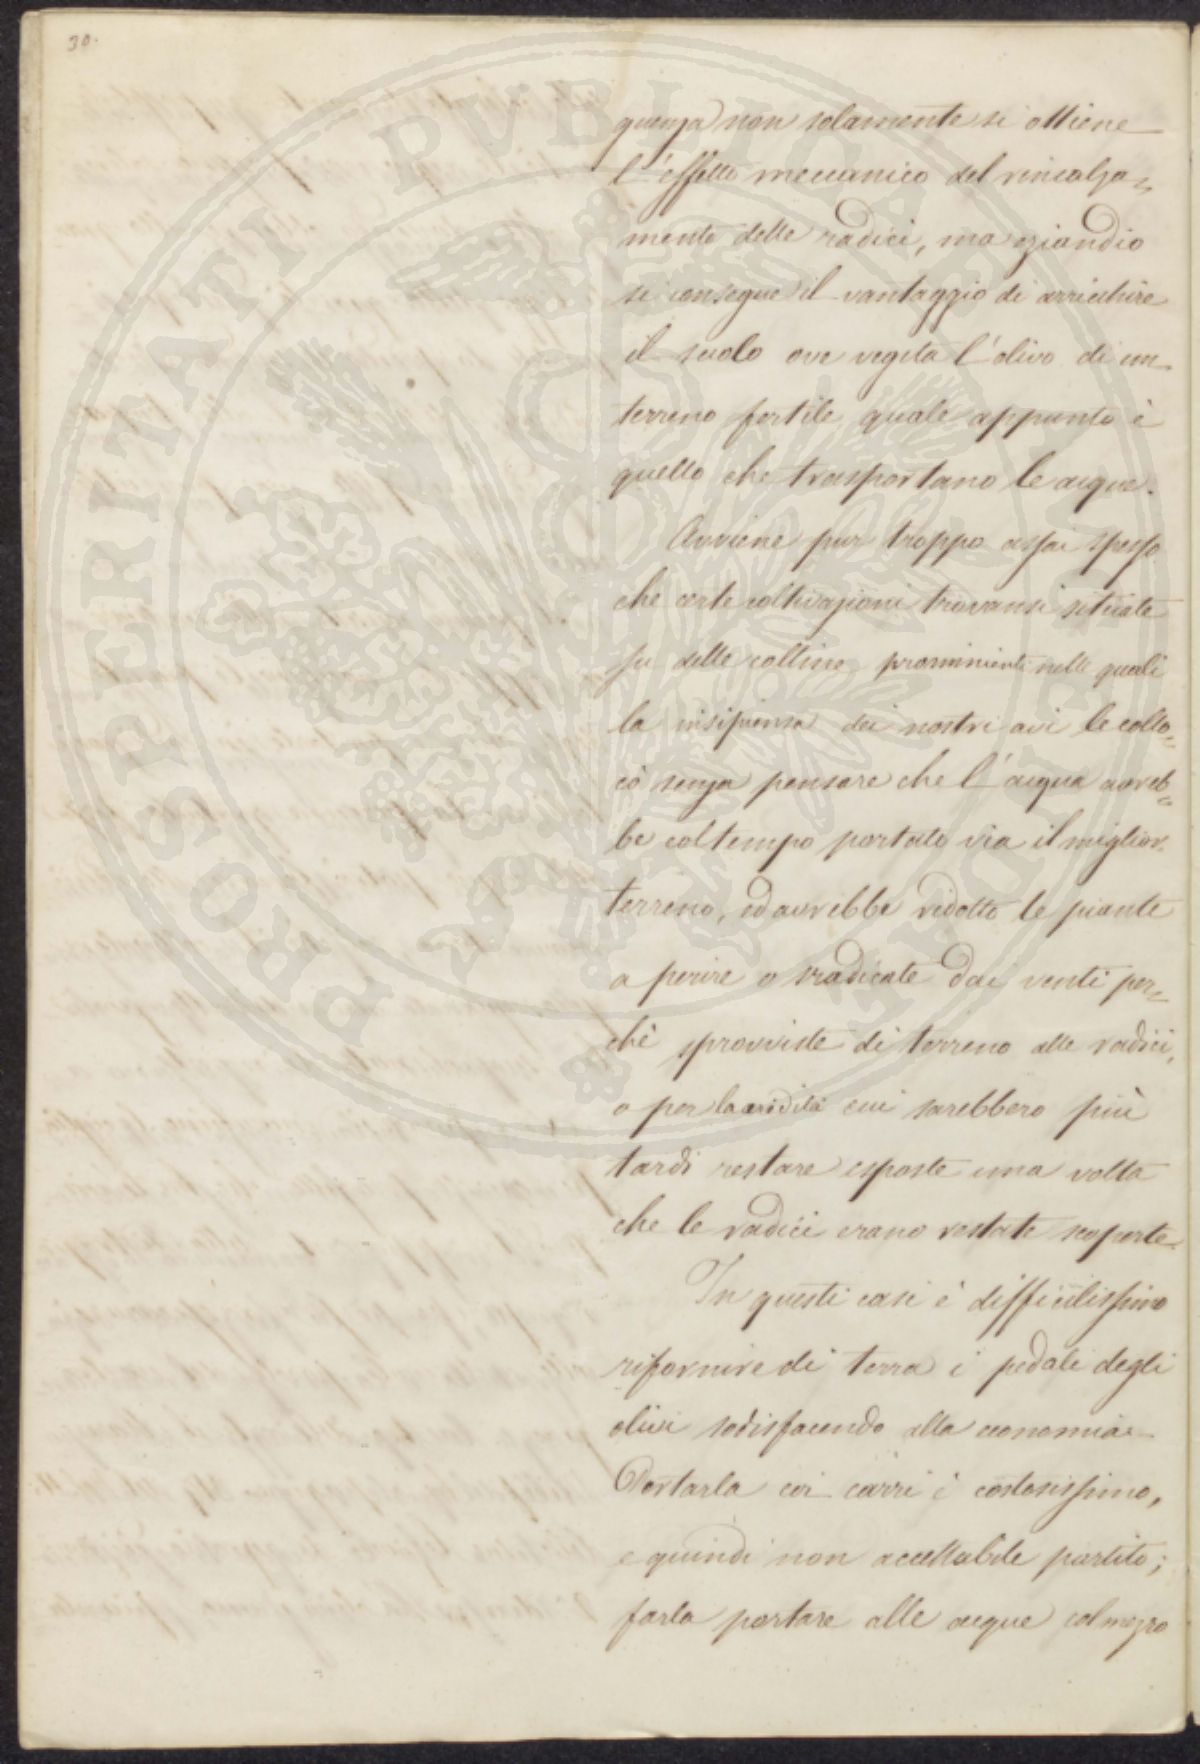 30.
quenza non solamente si ottiene
l'effetto meccanico del rincalza=
mento delle radici, ma eziandio
si consegue il vantaggio di arricchire
il suolo ove vegeta l'olivo di un
terreno fertile quale appunto è
quello che trasportano le acque.
Avviene pur troppo assai spesso
che certe coltivazioni trovansi situate
su delle colline prominenti nelle quali
la insipienza dei nostri avi le collo=
cò senza pensare che l'acqua avreb=
be col tempo portato via il miglior
terreno, ed avrebbe ridotto le piante
a perire o sradicate dai venti per=
chè sprovviste di terreno alle radici,
o per la aridità cui sarebbero più
tardi restare esposte una volta
che le radici erano restate scoperte.
In questi casi è difficilissimo
rifornire di terra i pedali degli
olivi sodisfacendo alla economia.
Portarla coi carri è costosissimo,
e quindi non accettabile partito;
farla portare alle acque col mezzo
PROSPERITATI PVBLICAE